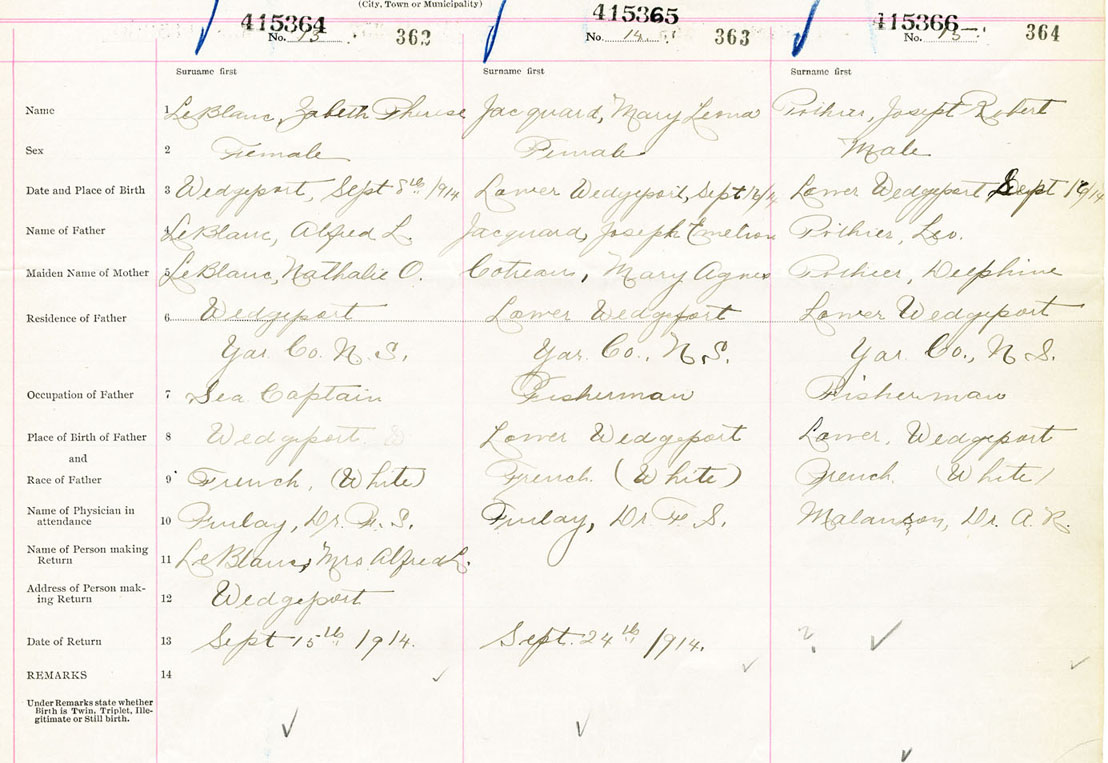 (City, Town or Municipality)
415364 415365 415366
No. 13 362 No. 14 363 No. 15 364
Surname first Surname first Surname first
Name 1 LeBlanc, Zabeth Therese Jacquard, Mary Leona Pothier, Joseph Robert
Sex 2 Female Female Male
Date and Place of Birth 3 Wedgeport, Sept 8th 1914 Lower Wedgeport, Sept Lower Wedgeport, Sept
Name of Father 4 LeBlanc, Alfred L. Jacquard, Joseph Emelion Pothier, Leo.
Maiden Name of Mother 5 LeBlanc, Nathalie O. Cotreau, Mary Agnes Pothier, Delphine
Residence of Father 6 Wedgeport Lower Wedgeport Lower Wedgeport
Yar. Co. N. S. Yar. Co., N. S. Yar. Co., N. S.
Occupation of Father 7 Sea Captain Fisherman Fisherman
Place of Birth of Father 8 Wedgeport Lower Wedgeport Lower, Wedgeport
and
Race of Father 9 French, (White) French. (White) French. (White)
Name of Physician in
attendance 10 Finlay, Dr. F. S. Finlay, Dr F. S. Malanson, Dr. A. R.
Name of Person making
Return 11 LeBlanc, Mrs Alfred L.
Address of Person mak-
ing Return 12 Wedgeport
Date of Return 13 Sept 15th 1914. Sept. 24th 1914. ?
REMARKS 14
Under Remarks state whether
Birth is Twin, Triplet, Ille-
gitimate or Still birth.